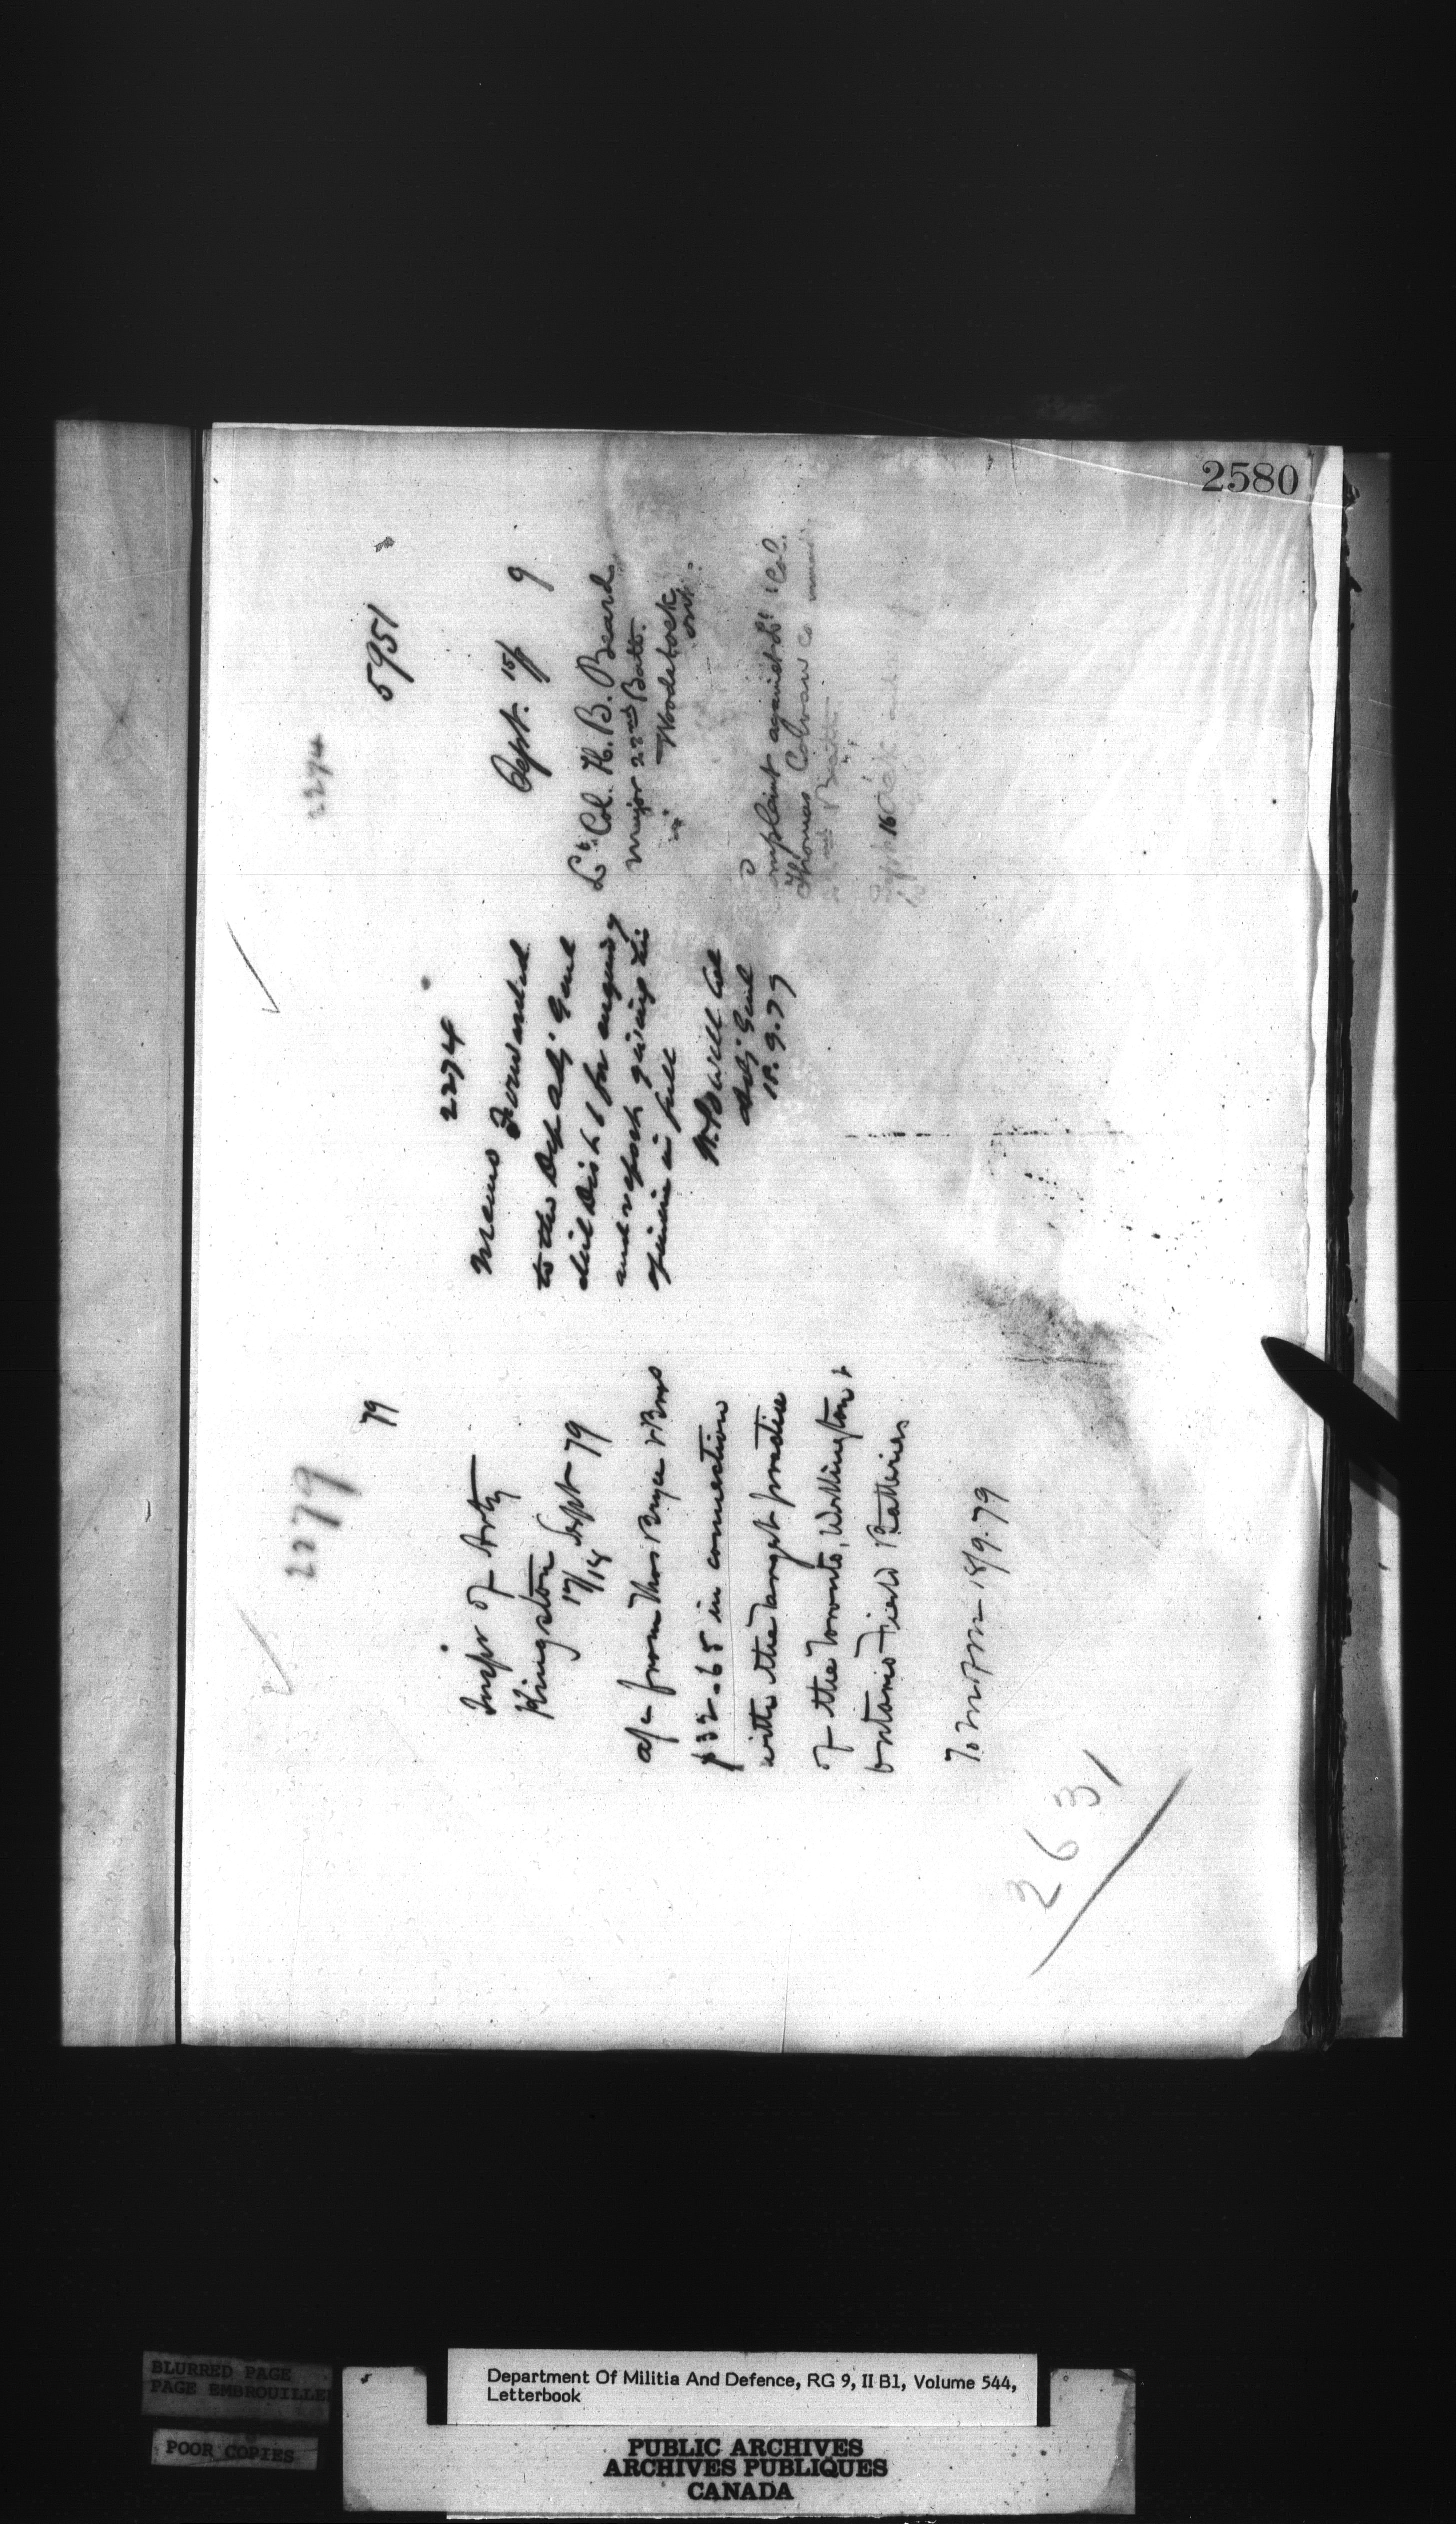 2580
2279
79
Inspr of Arty
Kingston
17/14 Sept 79
a/c from Thos Bryce & Bros
$32.65 in connection
with the target practice
of the Toronto, Wellington &
Ontario Field Batteries
To M of M 18/9.79
2631
2274
Memo Forwarded
to the Dep Adj Genl
Mil Dist 1 for enquiry
and report giving his
opinion in full
W. Powell Col
Adj Genl
18.9.79
2274
5951
Sept. 15/ 9
Lt. Col. H. B. Beard
Major 22nd Batt.
Woodstock
Ont.
Complaint against Lt Col.
Thomas Cowan Comm
22nd Batt.
Sept 16
BLURRED PAGE
PAGE EMBROUILLEE
POOR COPIES
Department Of Militia And Defence, RG 9, II B1, Volume 544,
Letterbook
PUBLIC ARCHIVES
ARCHIVES PUBLIQUES
CANADA